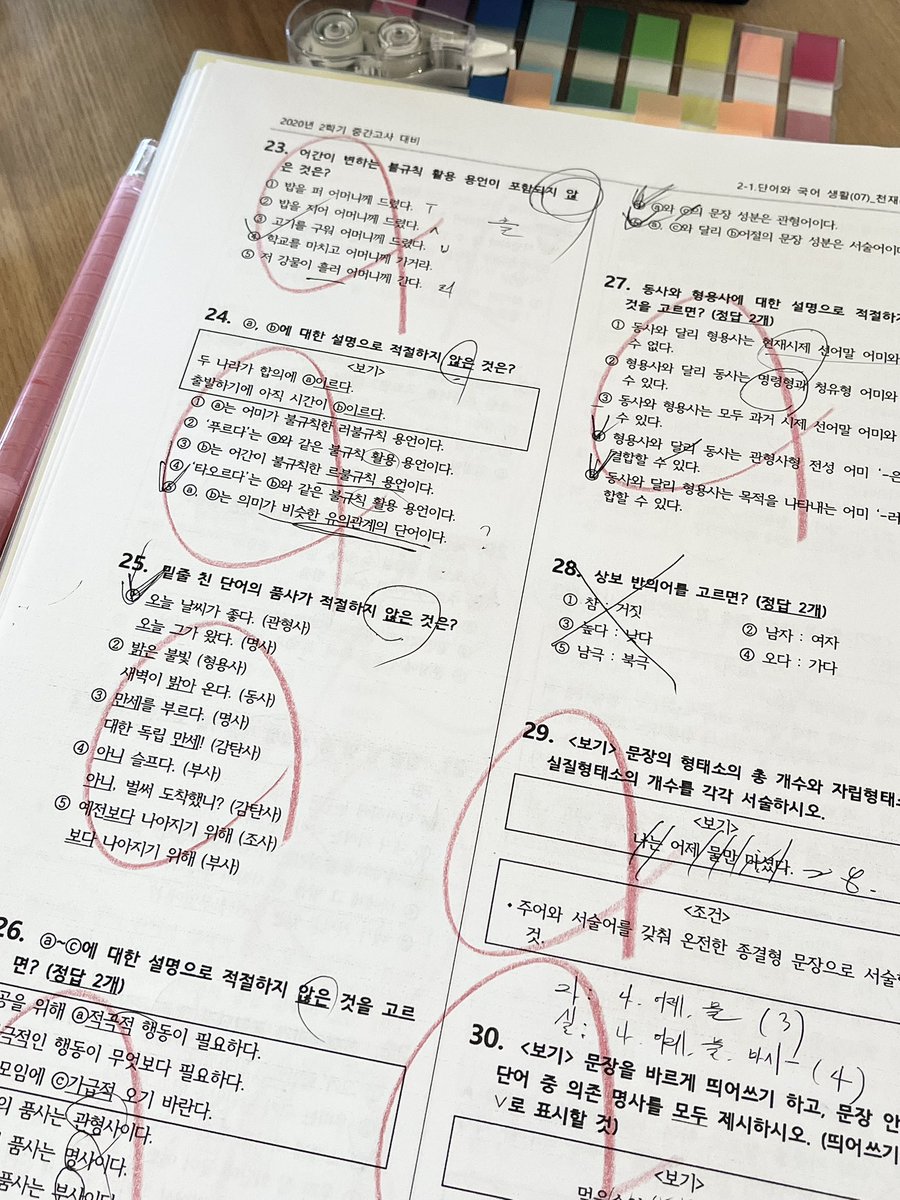 2020년 2학기 중간고사 대비
23. 어간이 변하는 불규칙 활용 용언이 포함되지 않
은 것은?
① 밥을 퍼 어머니께 드렸다. ㅜ
② 밥을 지어 어머니께 드렸다. ㅅ
③ 고기를 구워 어머니께 드렸다. ㅂ
④ 학교를 마치고 어머니께 가거라.
⑤ 저 강물이 흘러 어머니께 간다. 르
24. ⓐ, ⓑ에 대한 설명으로 적절하지 않은 것은?
<보기>
두 나라가 합의에 ⓐ이르다.
출발하기에 아직 시간이 ⓑ이르다.
① ⓐ는 어미가 불규칙한 러불규칙 용언이다.
② '푸르다'는 ⓐ와 같은 불규칙 활용 용언이다.
③ ⓑ는 어간이 불규칙한 르불규칙 용언이다.
④ '타오르다'는 ⓑ와 같은 불규칙 활용 용언이다.
⑤ ⓐ, ⓑ는 의미가 비슷한 유의관계의 단어이다.
?
25. 밑줄 친 단어의 품사가 적절하지 않은 것은?
① 오늘 날씨가 좋다. (관형사)
오늘 그가 왔다. (명사)
② 밝은 불빛 (형용사)
새벽이 밝아 온다. (동사)
③ 만세를 부르다. (명사)
대한 독립 만세! (감탄사)
④ 아니 슬프다. (부사)
아니, 벌써 도착했니? (감탄사)
⑤ 예전보다 나아지기 위해 (조사)
보다 나아지기 위해 (부사)
26. ⓐ~ⓒ에 대한 설명으로 적절하지 않은 것을 고르
면? (정답 2개)
위해 ⓐ적극적 행동이 필요하다.
행동이 무엇보다 필요하다.
모임에 ⓒ가급적 오기 바란다.
품사는 관형사이다.
품사는 명사이다.
품사는 부사이다.
2-1.단어와 국어 생활(07)_천재
문장 성분은 관형어이다.
ⓐ, ⓒ와 달리 ⓑ어절의 문장 성분은 서술어이다
27. 동사와 형용사에 대한 설명으로 적절하지
것을 고르면? (정답 2개)
① 동사와 달리 형용사는 현재시제 선어말 어미와
수 없다.
② 형용사와 달리 동사는 명령형과 청유형 어미와
수 있다.
③ 동사와 형용사는 모두 과거 시제 선어말 어미와
수 있다.
④ 형용사와 달리 동사는 관형사형 전성 어미 '-은
결합할 수 있다.
⑤ 동사와 달리 형용사는 목적을 나타내는 어미 '-러
합할 수 있다.
28. 상보 반의어를 고르면? (정답 2개)
① 참 : 거짓 ② 남자 : 여자
③ 높다 : 낮다 ④ 오다 : 가다
⑤ 남극 : 북극
29. <보기> 문장의 형태소의 총 개수와 자립형태소
실질형태소의 개수를 각각 서술하시오.
<보기>
나는 어제 물만 마셨다. 8.
<조건>
• 주어와 서술어를 갖춰 온전한 종결형 문장으로 서술할
것.
자 : 나. 어제, 물 (3)
실 : 나. 어제, 물, 마시- (4)
30. <보기> 문장을 바르게 띄어쓰기 하고, 문장 안
단어 중 의존 명사를 모두 제시하시오. (띄어쓰기
∨로 표시할 것)
<보기>